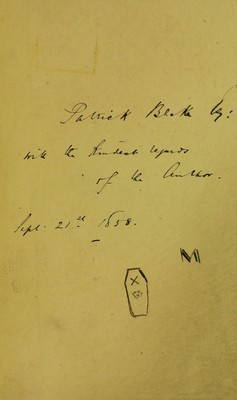 Patrick Blake Esq:
with the kindest regards
of the Author.
Sept. 21st 1858.
M
X